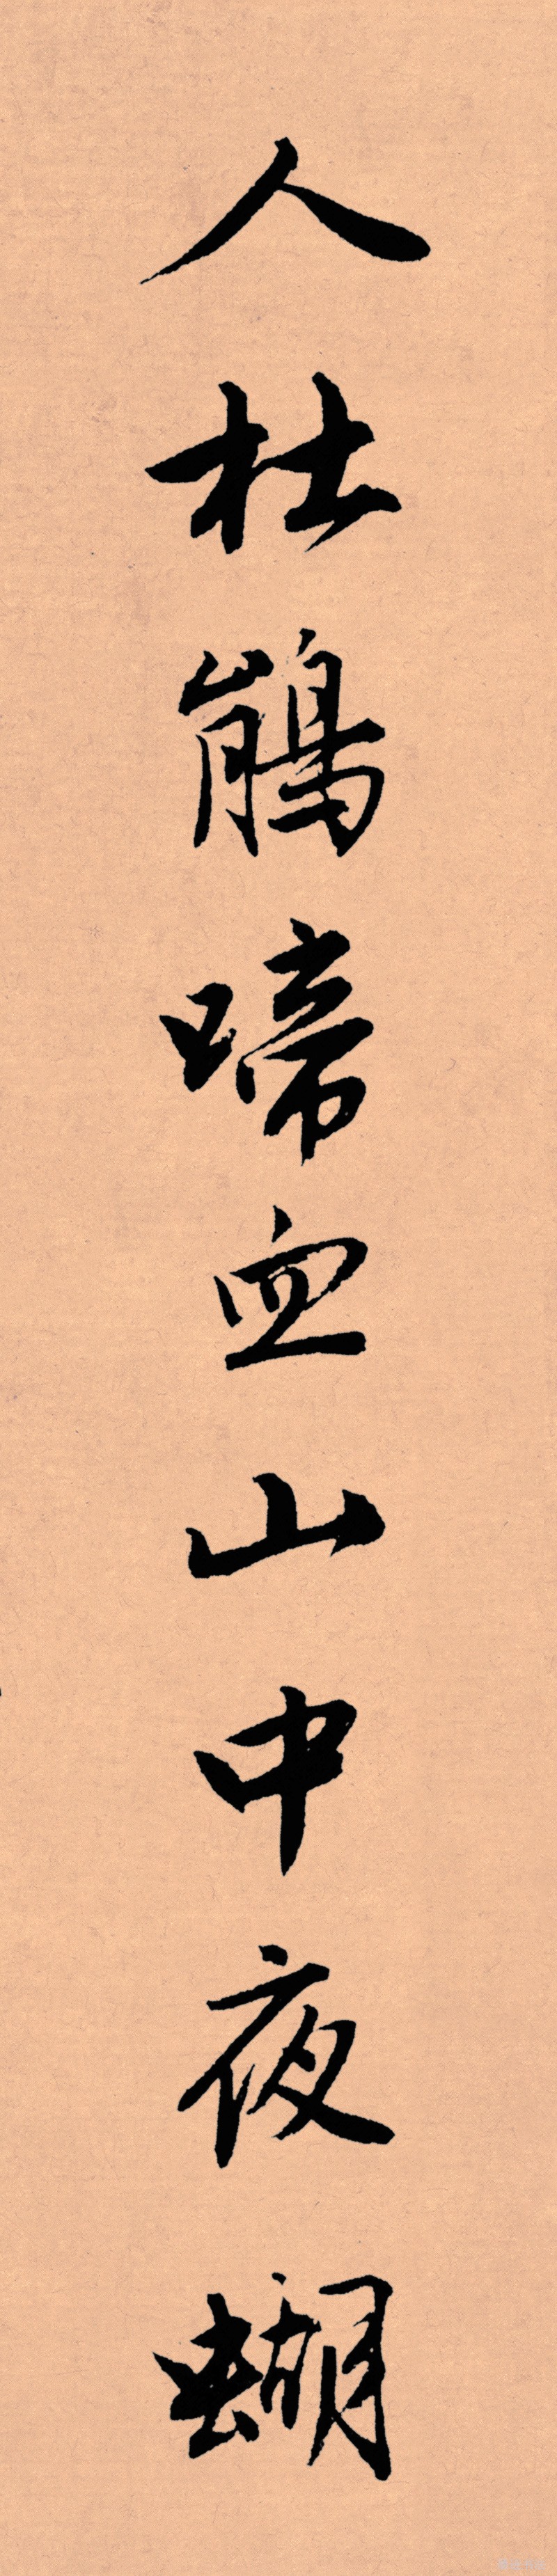 人杜鵑啼血山中夜蝴